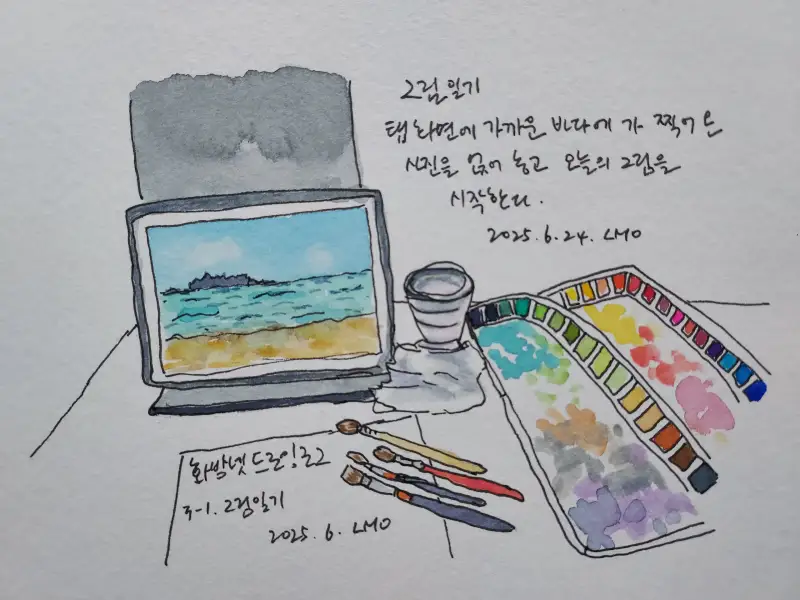 그림일기
탭 화면에 가까운 바다에 가 찍어 온
사진을 띄어 놓고 오늘의 그림을
시작한다.
2025.6.24. LMO
화방넷 드로잉로그
3-1. 그림일기
2025. 6. LMO